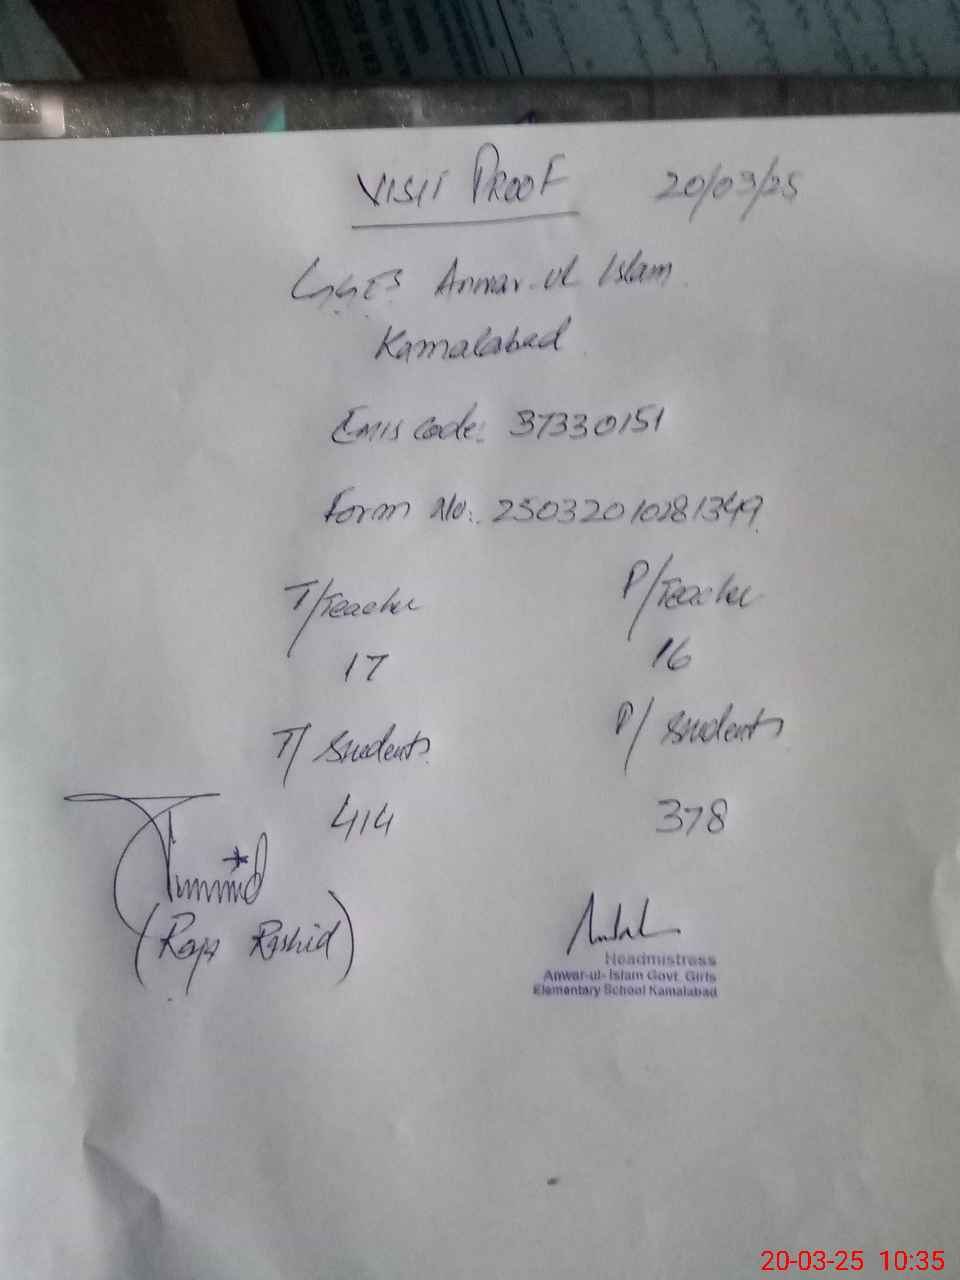 VISIT PROOF 20/03/25
GGES Anwar-ul Islam
Kamalabad
Emis Code: 37330151
Form No: 25032010281349
T/Teacher P/Teacher
17 16
T/ Students P/ Students
414 378
(Raja Rashid)
Headmistress
Anwar-ul-Islam Govt. Girls
Elementary School Kamalabad
20-03-25 10:35